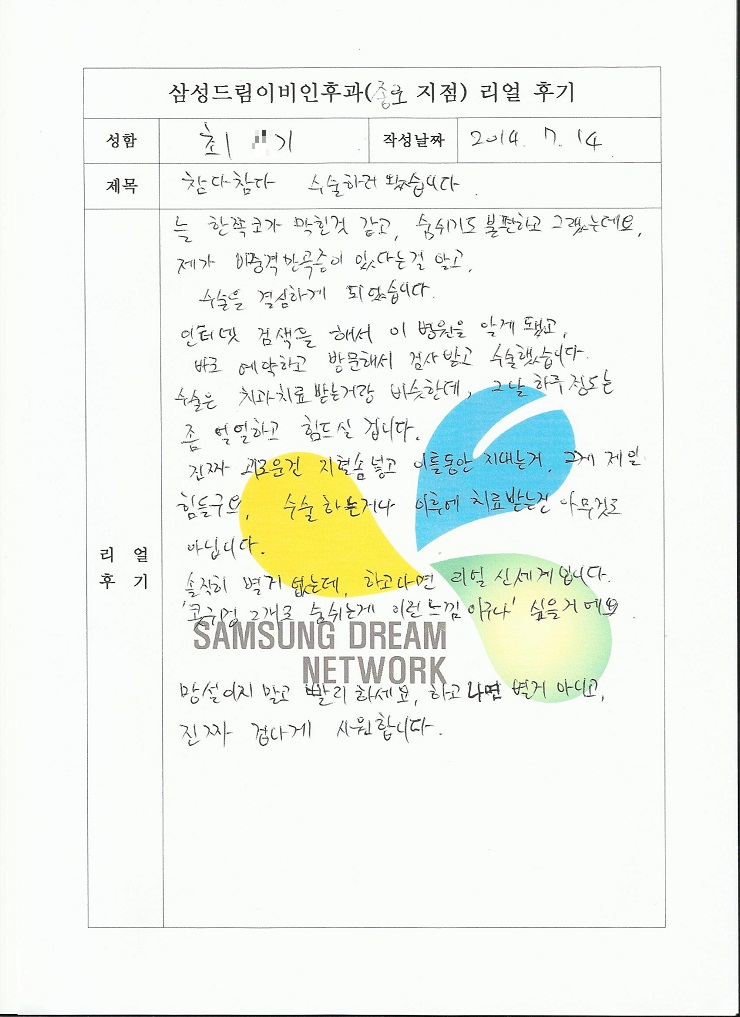 삼성드림이비인후과(종로 지점) 리얼 후기
성함 최 기 작성날짜 2014. 7. 14
제목 참다참다 수술하러 왔습니다.
늘 한쪽코가 막힌것 같고, 숨쉬기도 불편하고 그랬는데요,
제가 비중격만곡증이 있다는걸 알고,
수술을 결심하게 되었습니다.
인터넷 검색을 해서 이 병원을 알게 됐고,
바로 예약하고 방문해서 검사받고 수술했습니다.
수술은 치과치료 받는거랑 비슷한데, 그날 하루 정도는
좀 얼얼하고 힘드실 겁니다.
진짜 괴로운건 지혈솜 넣고 이틀동안 지내는거, 그게 제일
힘들구요, 수술 하는거나 이후에 치료받는건 아무것도
아닙니다.
리 얼
후 기
솔직히 별거 없는데, 하고나면 리얼 신세계입니다.
'콧구멍 2개로 숨쉬는게 이런느낌 이구나' 싶을거에요.
SAMSUNG DREAM
NETWORK
망설이지 말고 빨리 하세요, 하고 나면 별거 아니고,
진짜 겁나게 시원합니다.